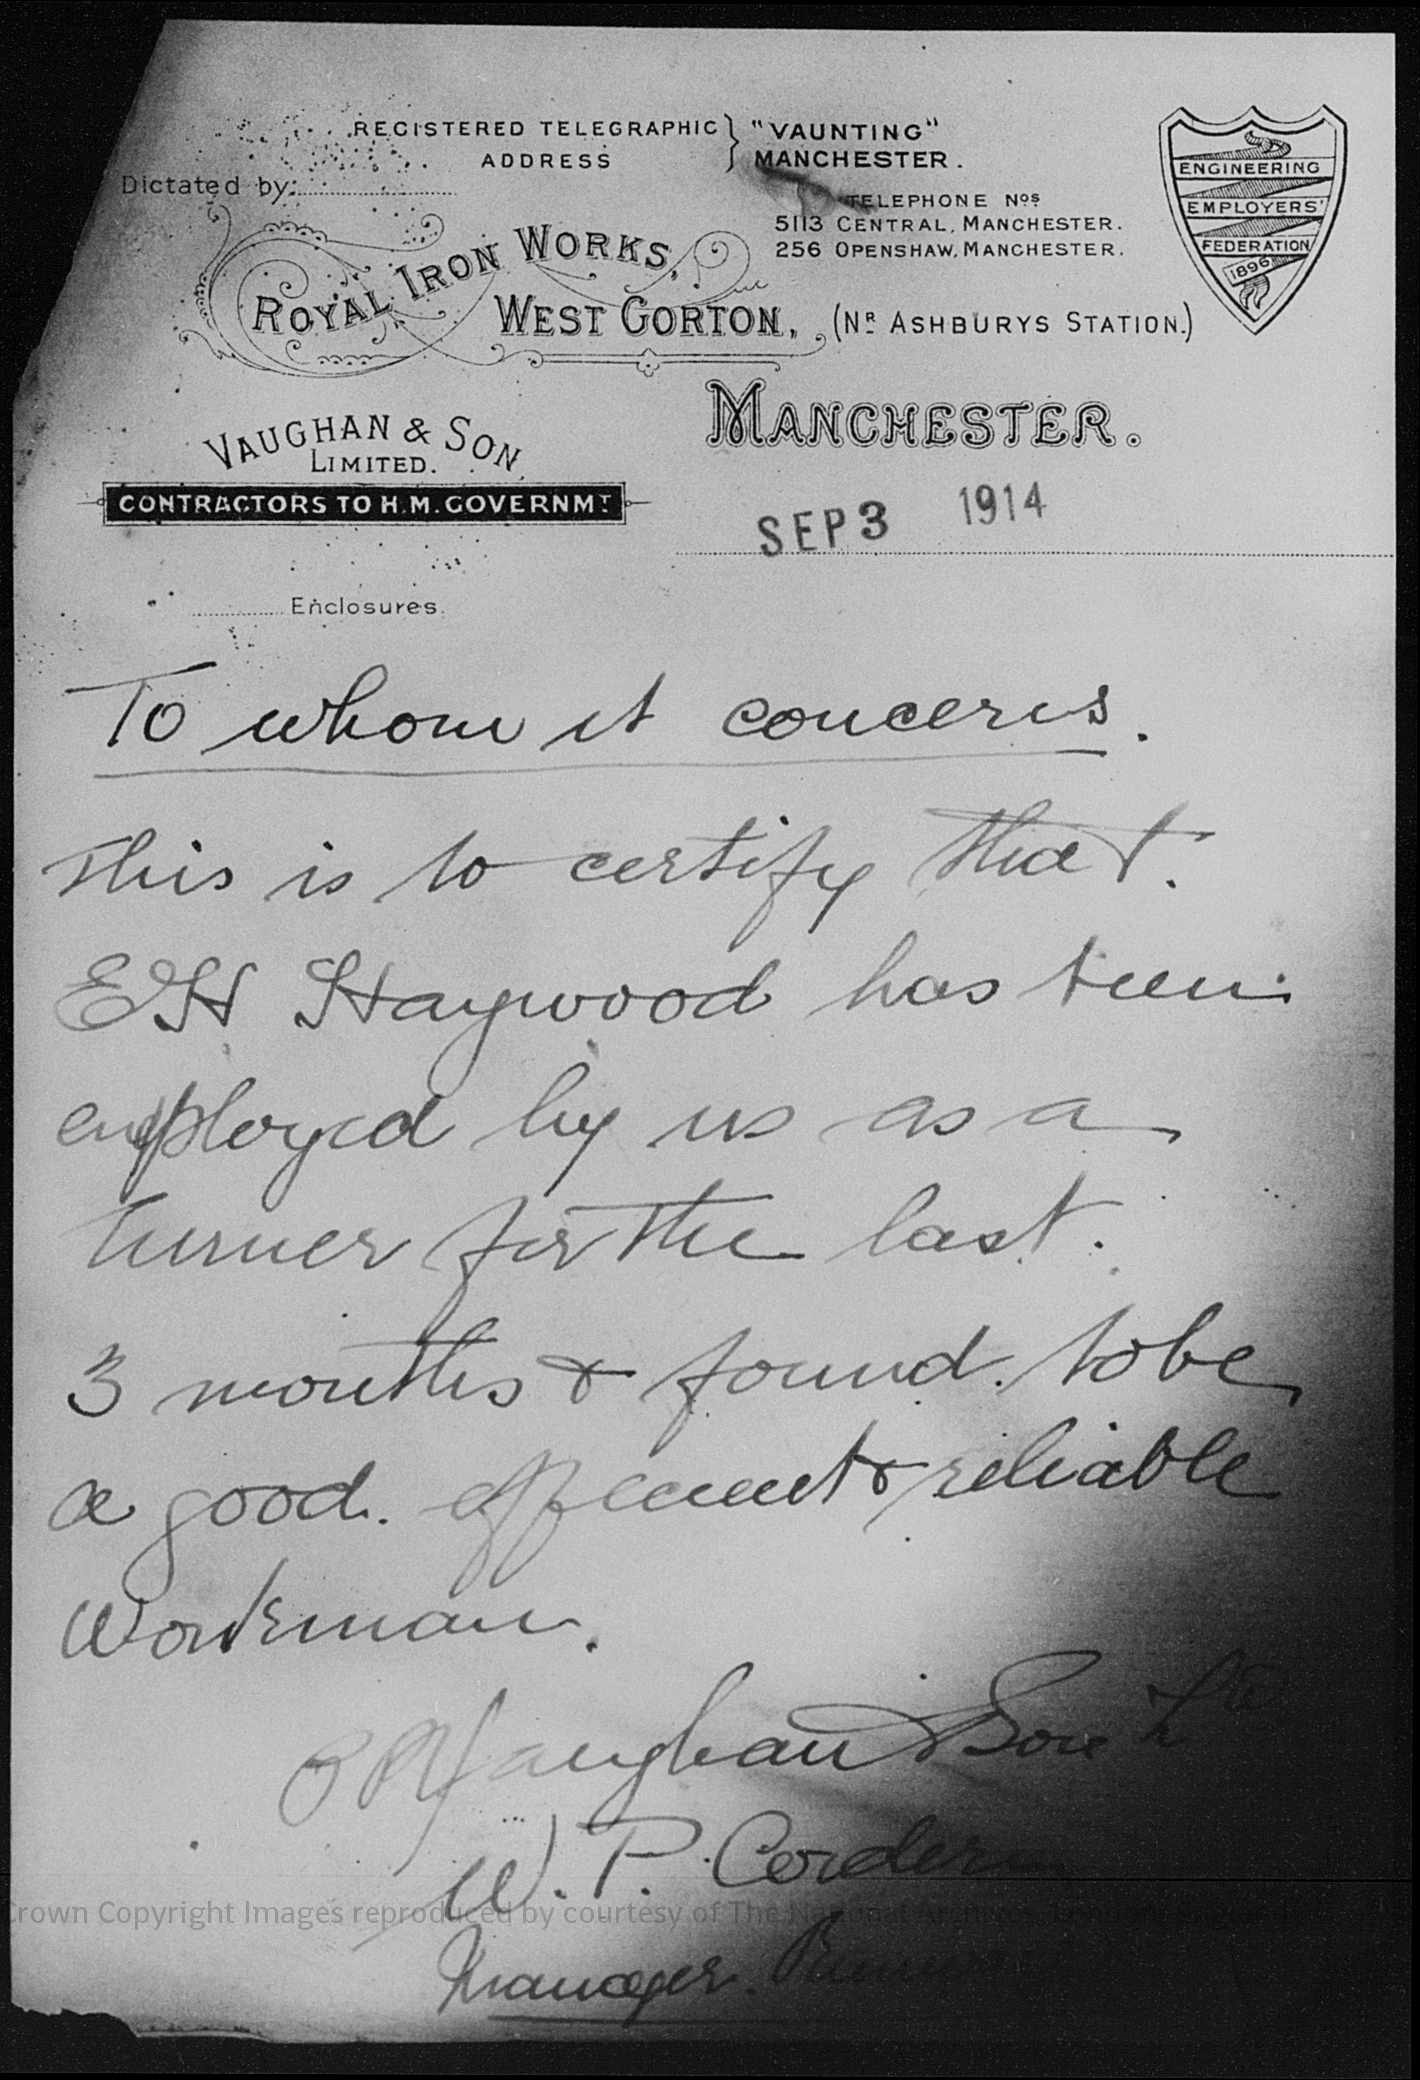 REGISTERED TELEGRAPHIC ADDRESS } "VAUNTING" MANCHESTER.
Dictated by:
TELEPHONE Nos
5113 CENTRAL, MANCHESTER.
256 OPENSHAW, MANCHESTER.
ENGINEERING
EMPLOYERS'
FEDERATION
1896
ROYAL IRON WORKS,
WEST GORTON, (NR ASHBURYS STATION.)
MANCHESTER.
VAUGHAN & SON
LIMITED.
CONTRACTORS TO H.M. GOVERNMT
SEP 3 1914
Enclosures.
To whom it concerns.
This is to certify that.
E H Haywood has been
employed by us as a
Turner for the last.
3 months & found. to be
a good. efficient & reliable
Workman.
Vaughan & Son Ld
W. P.
Manager.
Crown Copyright Images reproduced by courtesy of The National Archives, London, England.